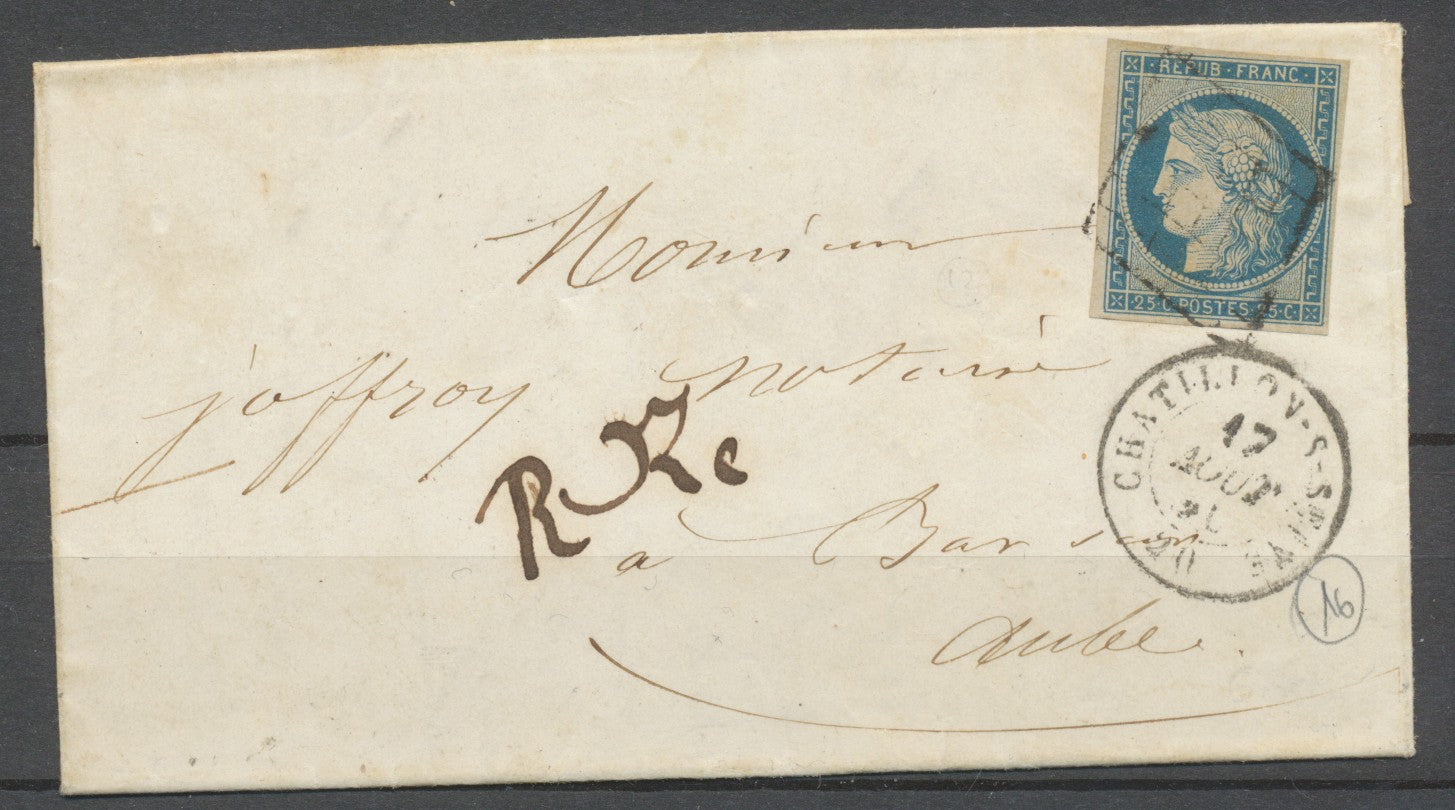 REPUB·FRANC·
25·C·POSTES·25·C·
Monsieur
joffroy notaire
R
à Bar sur
Aube.
CHATILLON-S-SEINE
17
AOUT
20
16